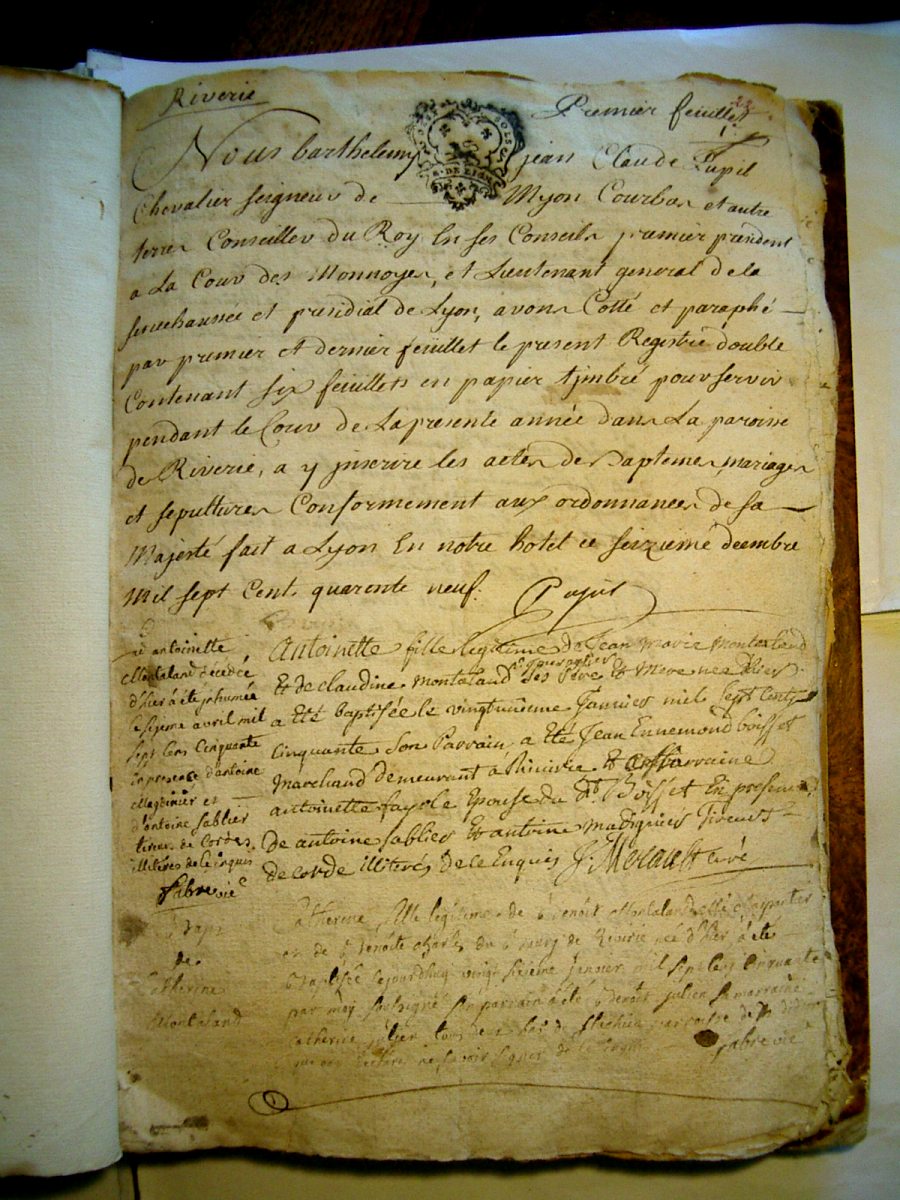 Riverie
Premier feuillet
Nous barthelemy jean Claude Pupil
Chevalier seigneur de Myon Courbas et autre
terres Conseiller du Roy En ses Conseils premier president
a La Cour des Monnoyes, et Lieutenant general de la
senechaussée et presidial de Lyon, avons Cotté et paraphé
par premier et dernier feuillet le present Registre double
Contenant six feuillets en papier timbré pour servir
pendant le Cour de La presente année dans La paroisse
de Riverie, a y jnscrire les actes de Baptemes, mariages
et sepultures Conformement aux ordonnances de sa
Majesté fait a Lyon En notre hotel ce seizieme decembre
Mil sept Cent quarente neuf. Pupil
antoinette
Montaland decedé
d'hier à eté jnhumée
le sixieme avril mil
sept cens Cinquante
en presence d'antoine
Magdinier et
d'antoine sablier
tireurs de Cordes
illitérés de ce enquis
fabre vic
Antoinette fille legitime de Jean Marie Montaland
Et de claudine Montaland ses Père et Mere née d'hier
a Eté baptisée le vingtunième Janvier mil sept cents
Cinquante son Parrain a eté Jean Ennemond boisset
Marchand demeurant a Riverie Et sa Marraine
antoinette fayole Epouse du dt Boisset En presence
de antoine sablier Et antoine Madignier Tireurs
de corde illiterés de ce Enquis J. Merault curé
Bapt
de
Catherine
Montaland
Catherine fille legitime de benoit Montaland
et de benoite du bourg de Riverie née d'hier à été
baptisée lejourdhuy vingt sixieme Janvier mil sept cens cinquante
par moy soussigné son parrain à été benoit julien sa marraine
Catherine julien tous deux de parroisse de st didier
qui ont declaré ne savoir signer de ce enquis fabre vic